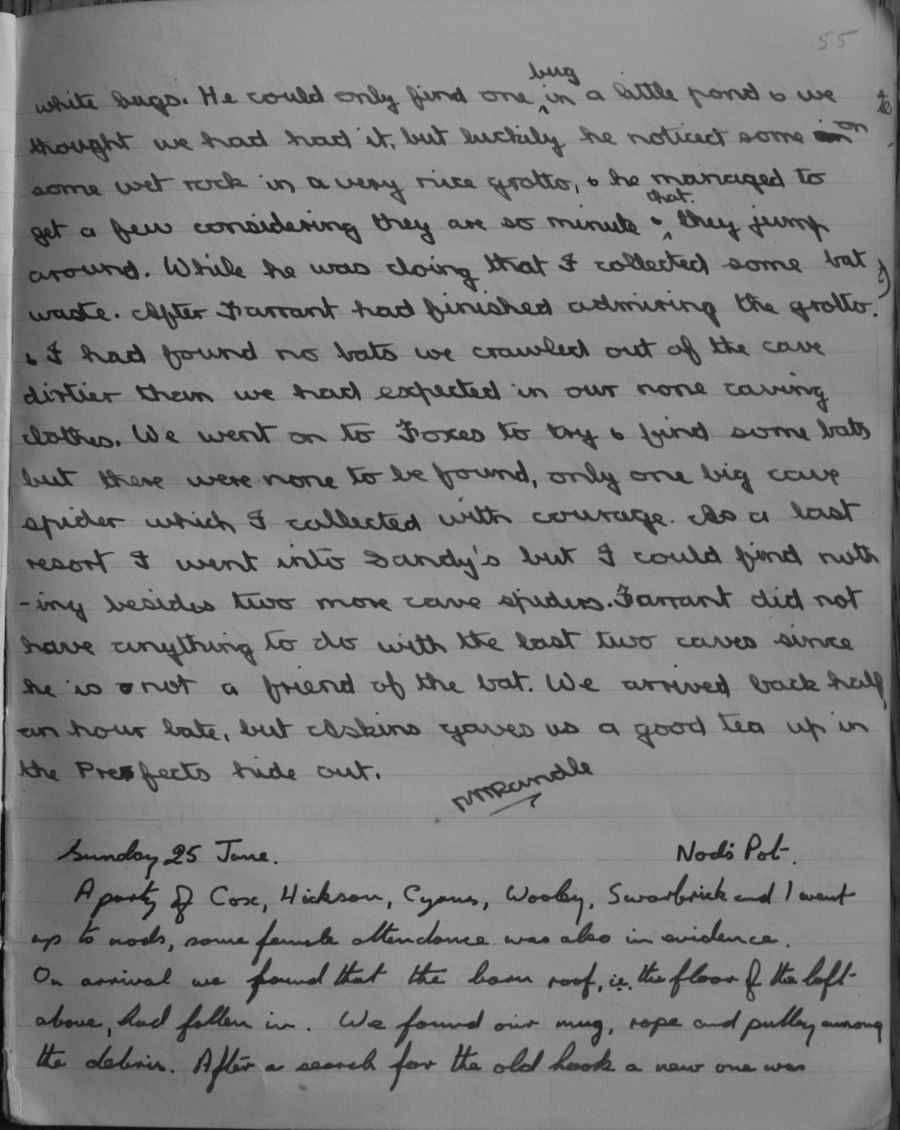 55
white bugs. He could only find one bug in a little pond & we
thought we had had it, but luckily he noticed some on
some wet rock in a very nice grotto, & he managed to
get a few considering they are so minute & that they jump
around. While he was doing that I collected some bat
waste. After Farrant had finished admiring the grotto.
& I had found no bats we crawled out of the cave
dirtier than we had expected in our none caving
clothes. We went on to Foxes to try & find some bats
but there were none to be found, only one big cave
spider which I collected with courage. As a last
resort I went into Sandy's but I could find noth
-ing besides two more cave spiders. Farrant did not
have anything to do with the last two caves since
he is not a friend of the bat. We arrived back half
an hour late, but Askins gaves us a good tea up in
the Prefects hide out.
Randle
Sunday 25 June. Nod's Pot.
A party of Cox, Hickson, Cyprus, Wooley, Swarbrick and I went
up to nods, some female attendance was also in evidence.
On arrival we found that the barn roof, i.e. the floor of the loft
above, had fallen in. We found our mug, rope and pulley among
the debris. After a search for the old hook a new one was